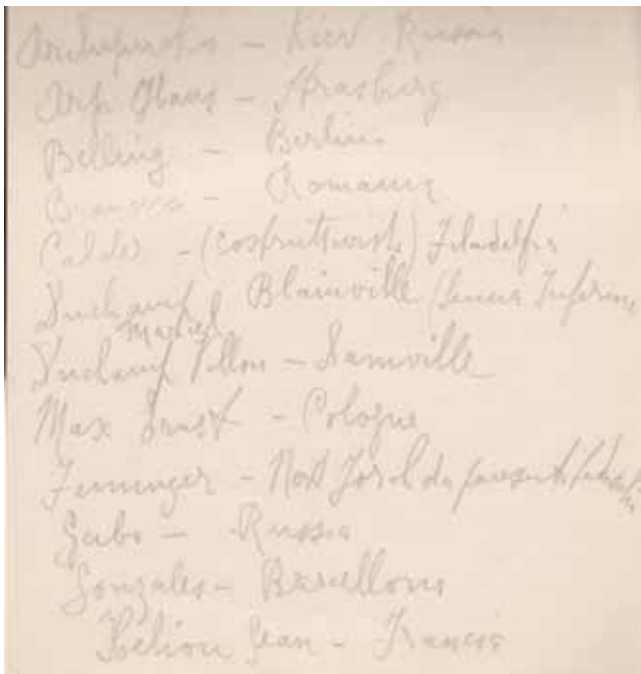 Archipenko - Kiev Russia
Arp Hans - Strasburg
Belling - Berlino
- Romania
Calder - (costruttivist) Filadelfia
Duchamp Blainville (Senna Inferiore
Marcel
Duchamp Villon - Damville
Max Ernst - Cologne
Feininger - Nord
Gabo - Russia
Gonzales - Barcellona
Helion Jean - Francia